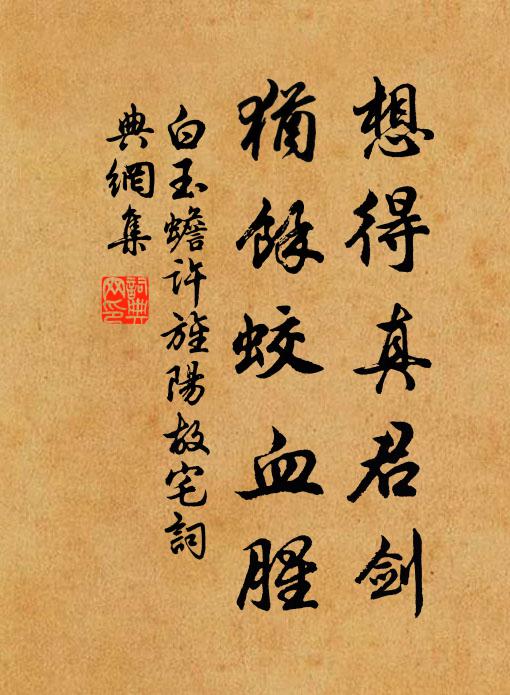 想得真君剑
猶餘蛟血腥
白玉蟾许旌陽故宅詞
典網集
詞典
网印